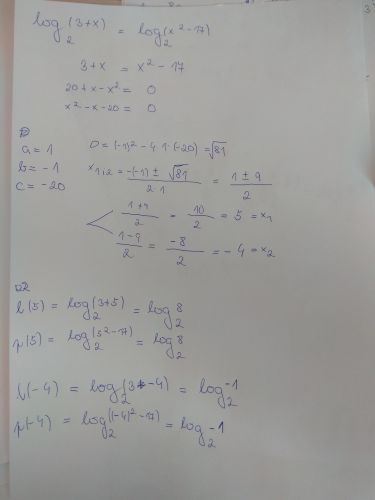 log₂(3+x) = log₂(x²-17)
3+x = x²-17
20+x-x² = 0
x²-x-20 = 0
D
a=1 D=(-1)²-4·1·(-20)=√81
b=-1 x₁,₂= -(-1)±√81 / 2·1 = 1±9 / 2
c=-20
1+9 / 2 = 10 / 2 = 5 = x₁
1-9 / 2 = -8 / 2 = -4 = x₂
l(5) = log₂(3+5) = log₂8
p(5) = log₂(5²-17) = log₂8
l(-4) = log₂(3+-4) = log₂-1
p(-4) = log₂((-4)²-17) = log₂-1